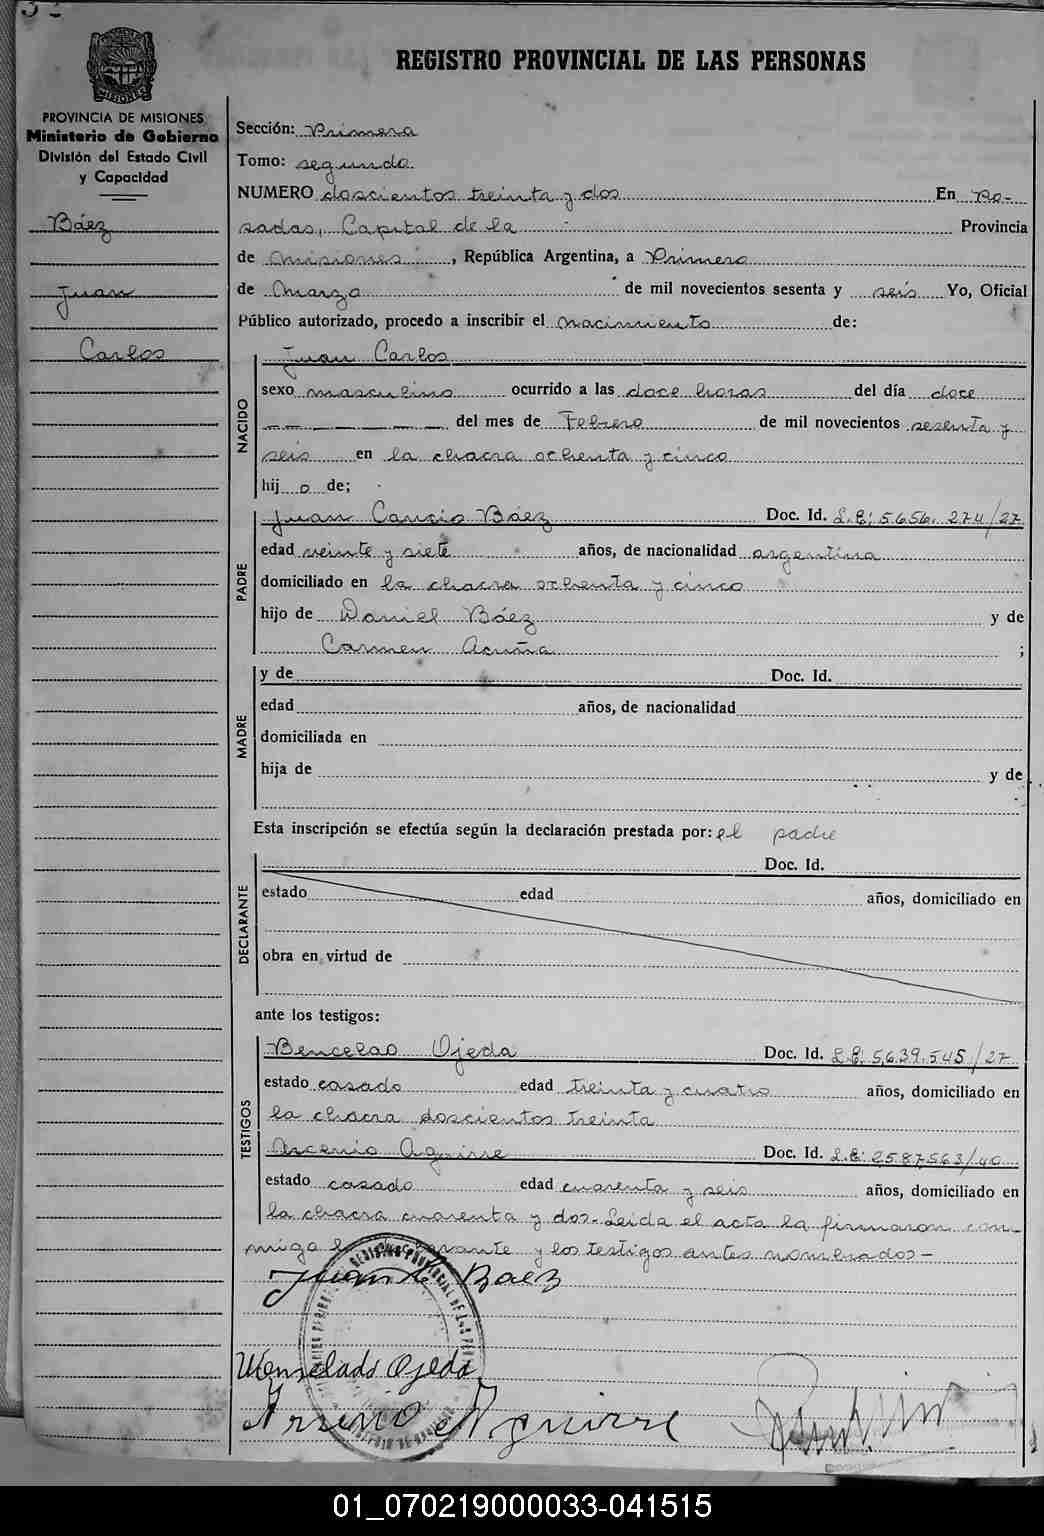 REGISTRO PROVINCIAL DE LAS PERSONAS
MISIONES
PROVINCIA DE MISIONES
Ministerio de Gobierno
División del Estado Civil
y Capacidad
Báez
Juan
Carlos
Sección: Primera
Tomo: segundo
NUMERO doscientos treinta y dos En Po-
sadas, Capital de la Provincia
de Misiones, República Argentina, a Primero
de Marzo de mil novecientos sesenta y seis Yo, Oficial
Público autorizado, procedo a inscribir el nacimiento de:
NACIDO
Juan Carlos
sexo masculino ocurrido a las doce horas del día doce
del mes de Febrero de mil novecientos sesenta y
seis en la chacra ochenta y cinco
hij o de;
PADRE
Juan Cancio Báez Doc. Id. L.E: 5.656.274/27
edad veinte y siete años, de nacionalidad argentina
domiciliado en la chacra ochenta y cinco
hijo de Daniel Báez y de
Carmen Acuña ;
MADRE
y de Doc. Id.
edad años, de nacionalidad
domiciliada en
hija de y de
Esta inscripción se efectúa según la declaración prestada por: el padre
DECLARANTE
Doc. Id.
estado edad años, domiciliado en
obra en virtud de
ante los testigos:
TESTIGOS
Bencelao Ojeda Doc. Id. L.E: 5.639.545/27
estado casado edad treinta y cuatro años, domiciliado en
la chacra doscientos treinta
Arcenio Aguirre Doc. Id. L.E: 2587563/40
estado casado edad cuarenta y seis años, domiciliado en
la chacra cuarenta y dos.- Leida el acta la firmaron con-
migo y los testigos antes nombrados-
Juan C Baez
Wenselado Ojeda
Arsenio Aguirre
01_070219000033-041515